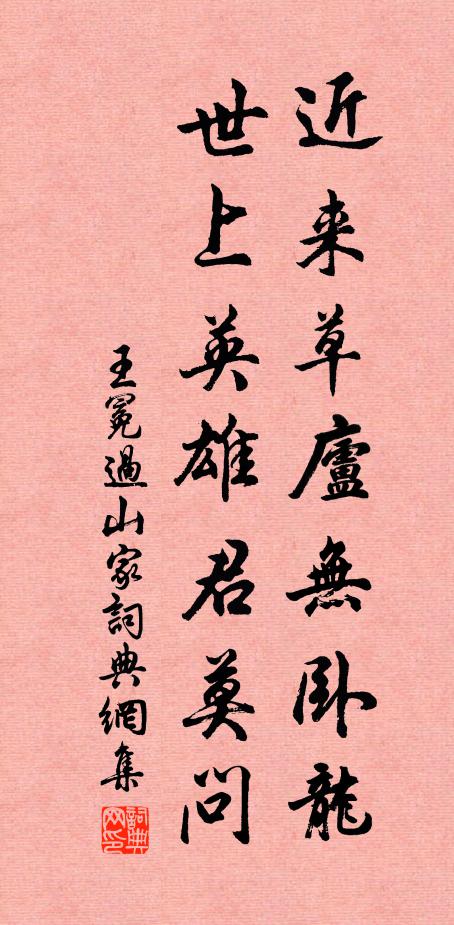 近来草廬無卧龍
世上英雄君莫問
王冕過山家詞典網集
詞典网印